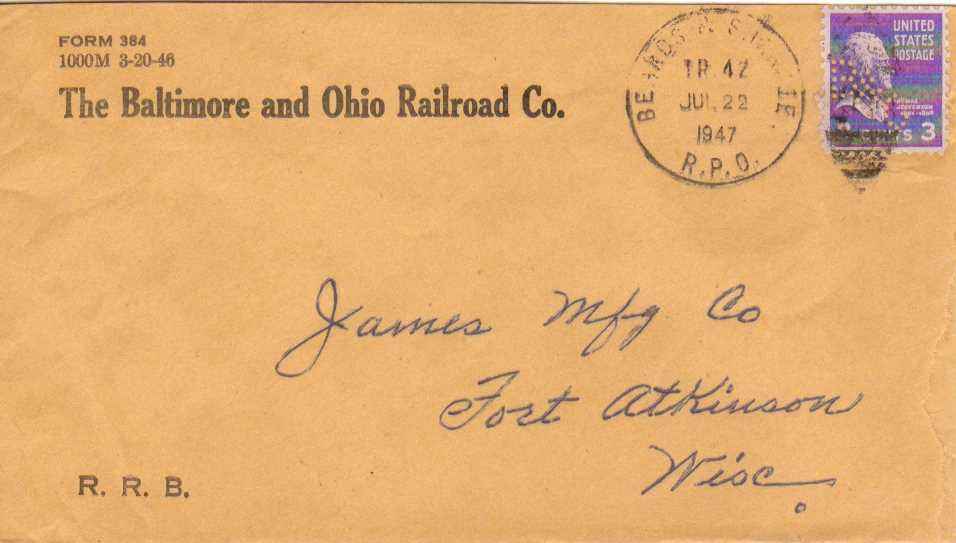 FORM 384
1000M 3-20-46
The Baltimore and Ohio Railroad Co.
TR. 42
JUL 22
1947
R.P.O.
UNITED
STATES
POSTAGE
3
James Mfg Co
Fort Atkinson
Wisc.
R. R. B.